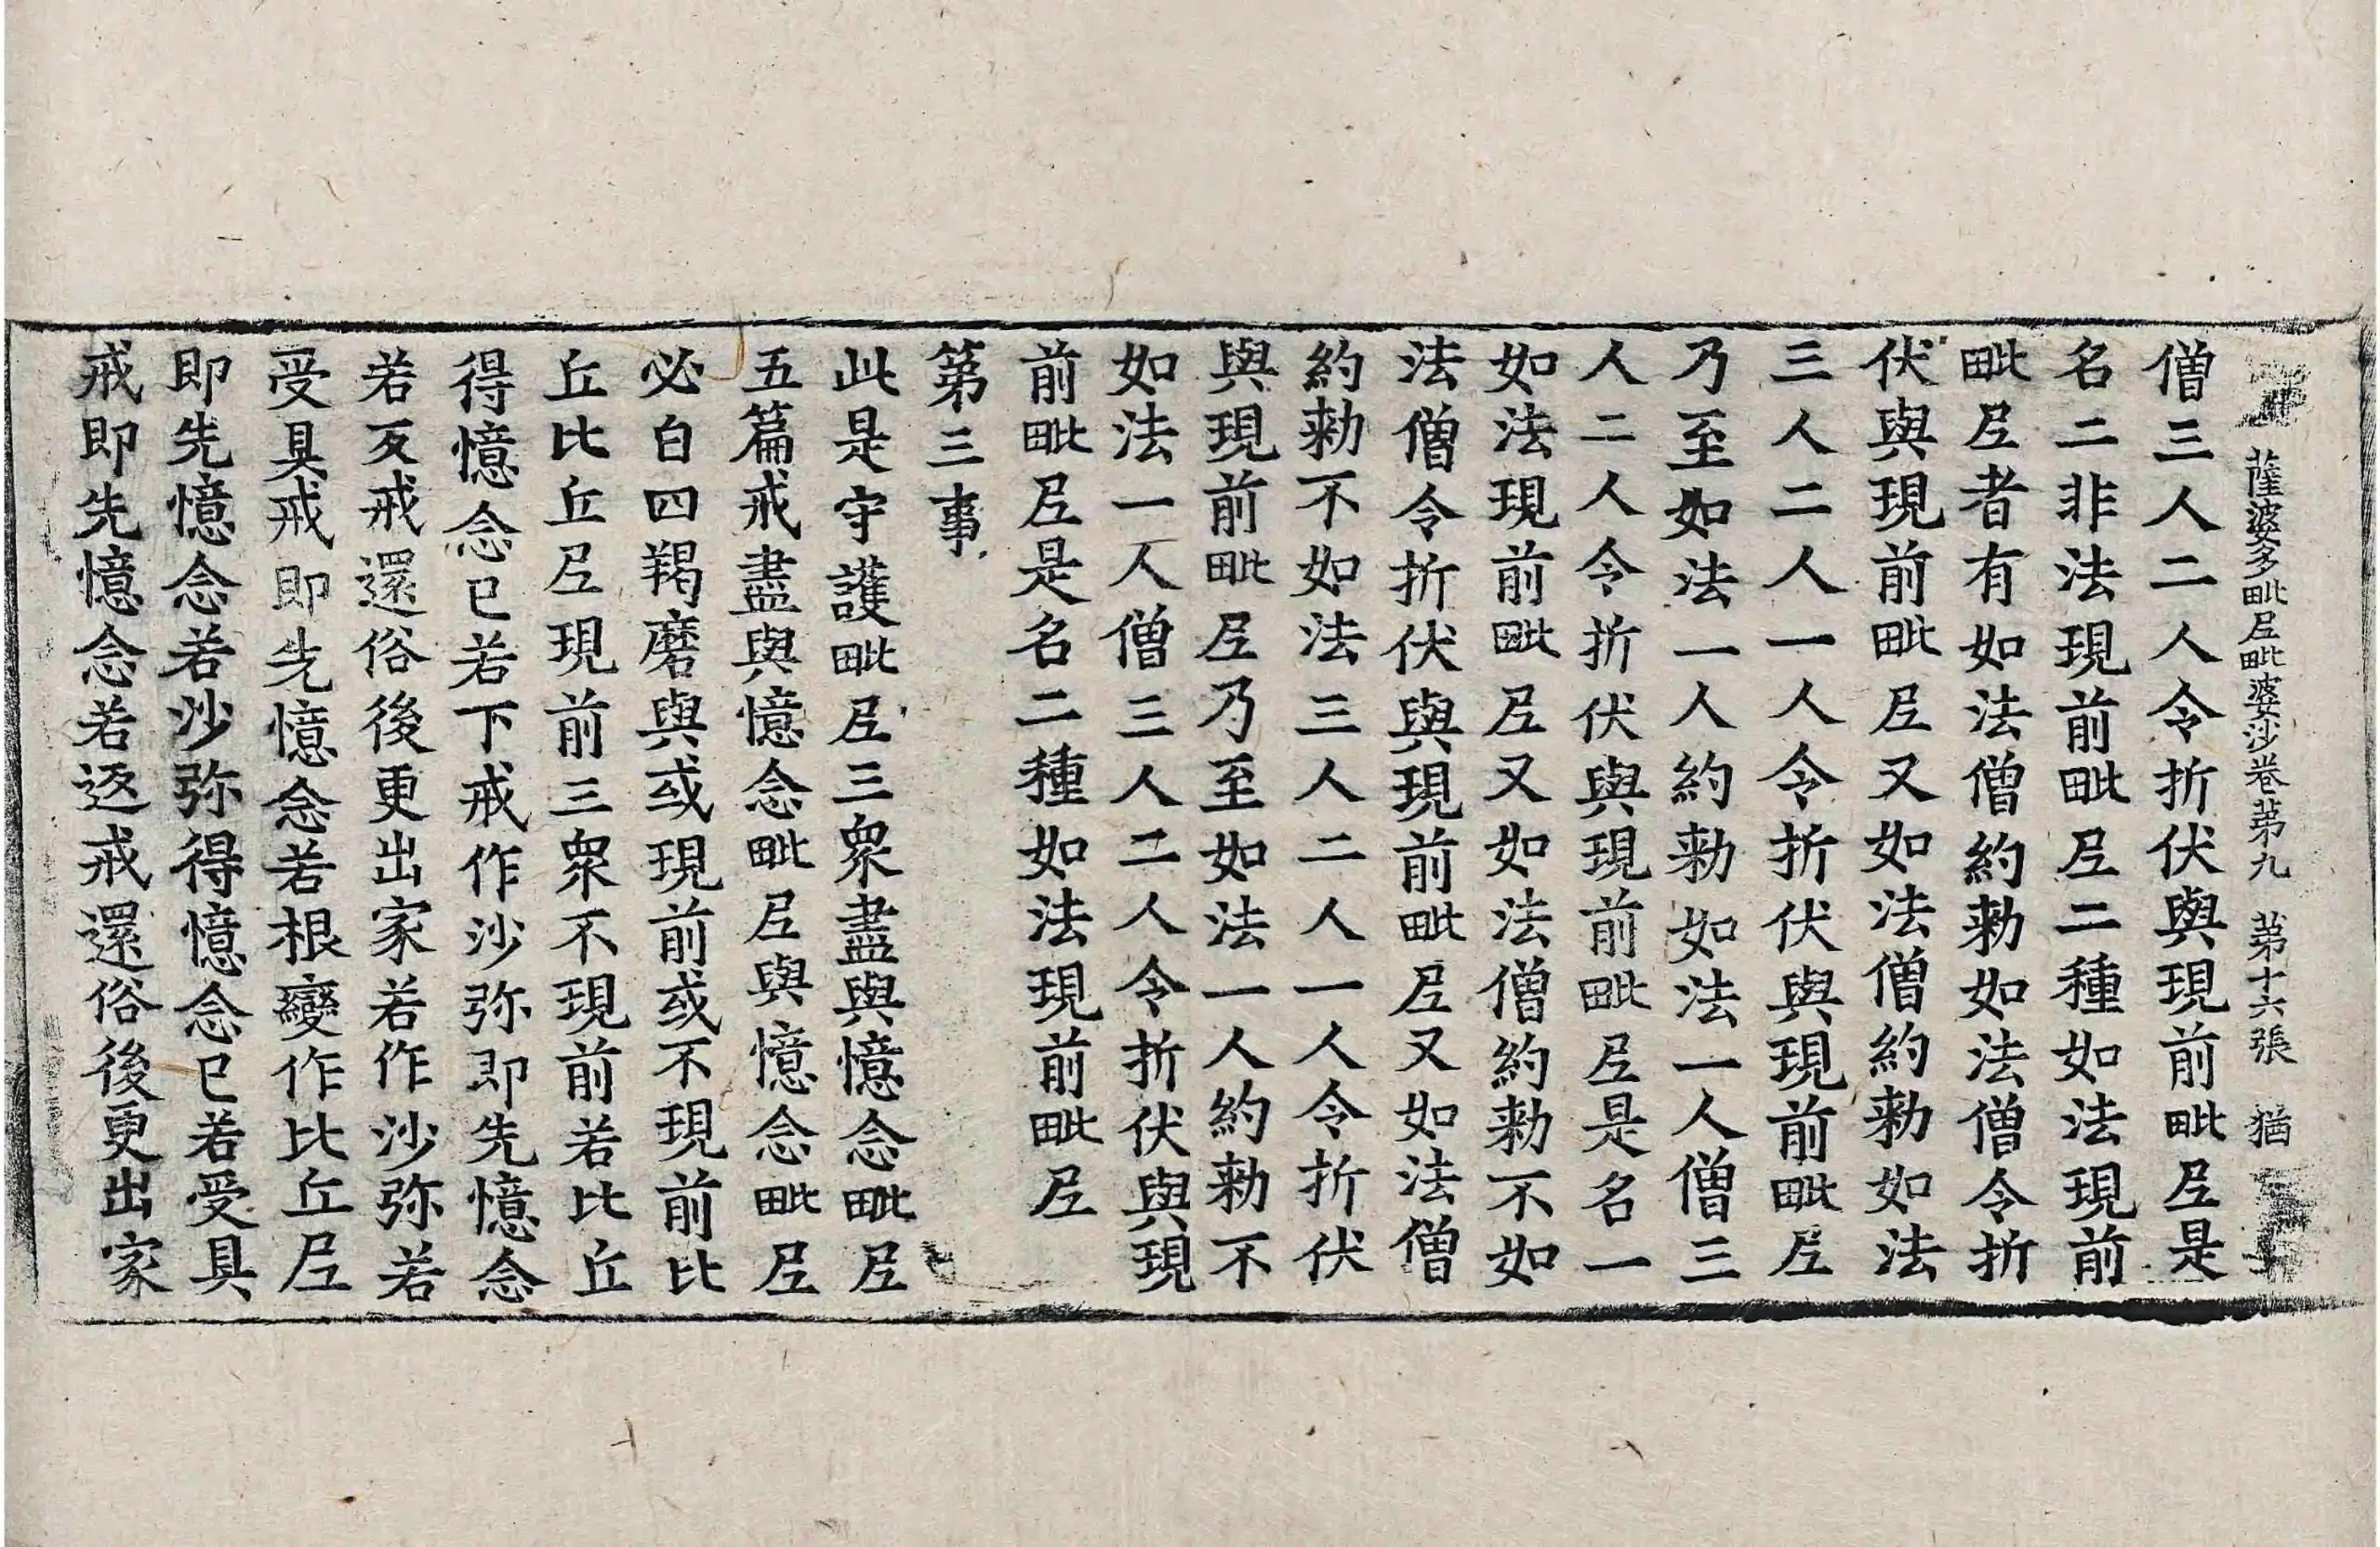 薩婆多毗尼毗婆沙卷苐九 苐十六張 猶
僧三人二人令折伏與現前毗尼是
名二非法現前毗尼二種如法現前
毗尼者有如法僧約勑如法僧令折
伏與現前毗尼又如法僧約勑如法
三人二人一人令折伏與現前毗尼
乃至如法一人約勑如法一人僧三
人二人令折伏與現前毗尼是名一
如法現前毗尼又如法僧約勑不如
法僧令折伏與現前毗尼又如法僧
約勑不如法三人二人一人令折伏
與現前毗尼乃至如法一人約勑不
如法一人僧三人二人令折伏與現
前毗尼是名二種如法現前毗尼
苐三事
此是守護毗尼三衆盡與憶念毗尼
五篇戒盡與憶念毗尼與憶念毗尼
必白四羯磨與或現前或不現前比
丘比丘尼現前三衆不現前若比丘
得憶念已若下戒作沙弥即先憶念
若反戒還俗後更出家若作沙弥若
受具戒即先憶念若根變作比丘尼
即先憶念若沙弥得憶念已若受具
戒即先憶念若返戒還俗後更出家